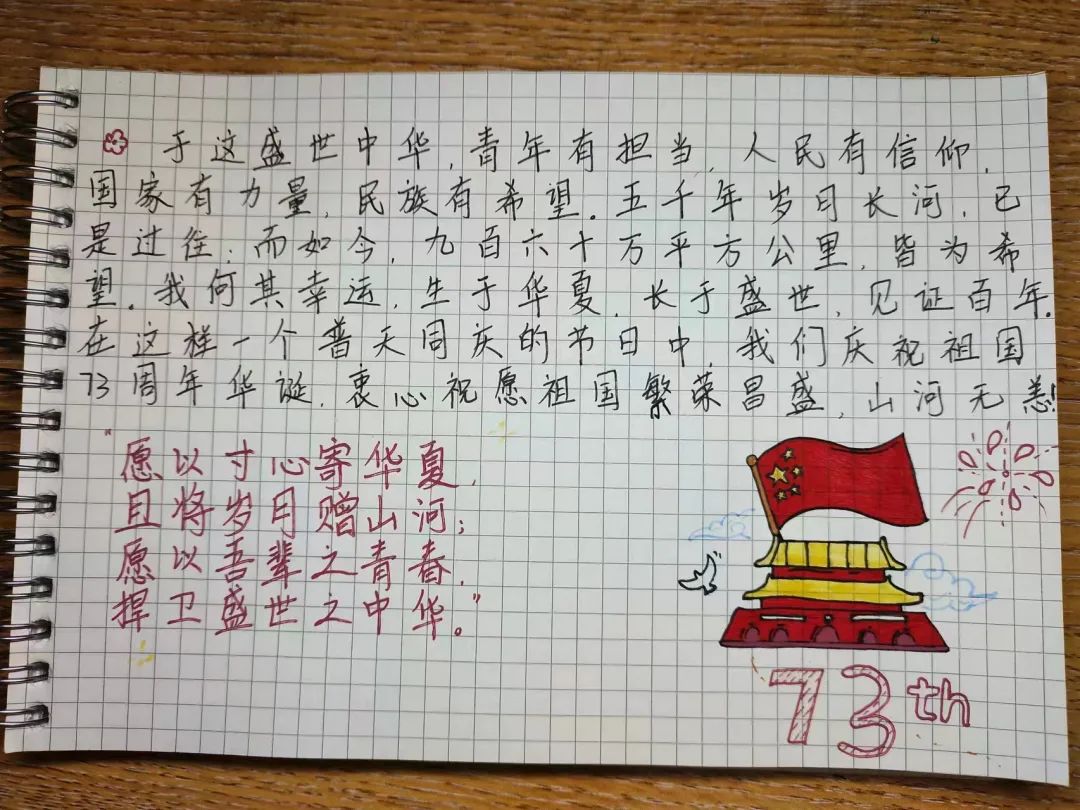 于这盛世中华,青年有担当,人民有信仰,
国家有力量,民族有希望。五千年岁月长河,已
是过往;而如今,九百六十万平方公里,皆为希
望。我何其幸运,生于华夏,长于盛世,见证百年。
在这样一个普天同庆的节日中,我们庆祝祖国
73周年华诞,衷心祝愿祖国繁荣昌盛,山河无恙!
“愿以寸心寄华夏,
且将岁月赠山河;
愿以吾辈之青春,
捍卫盛世之中华。”
73th